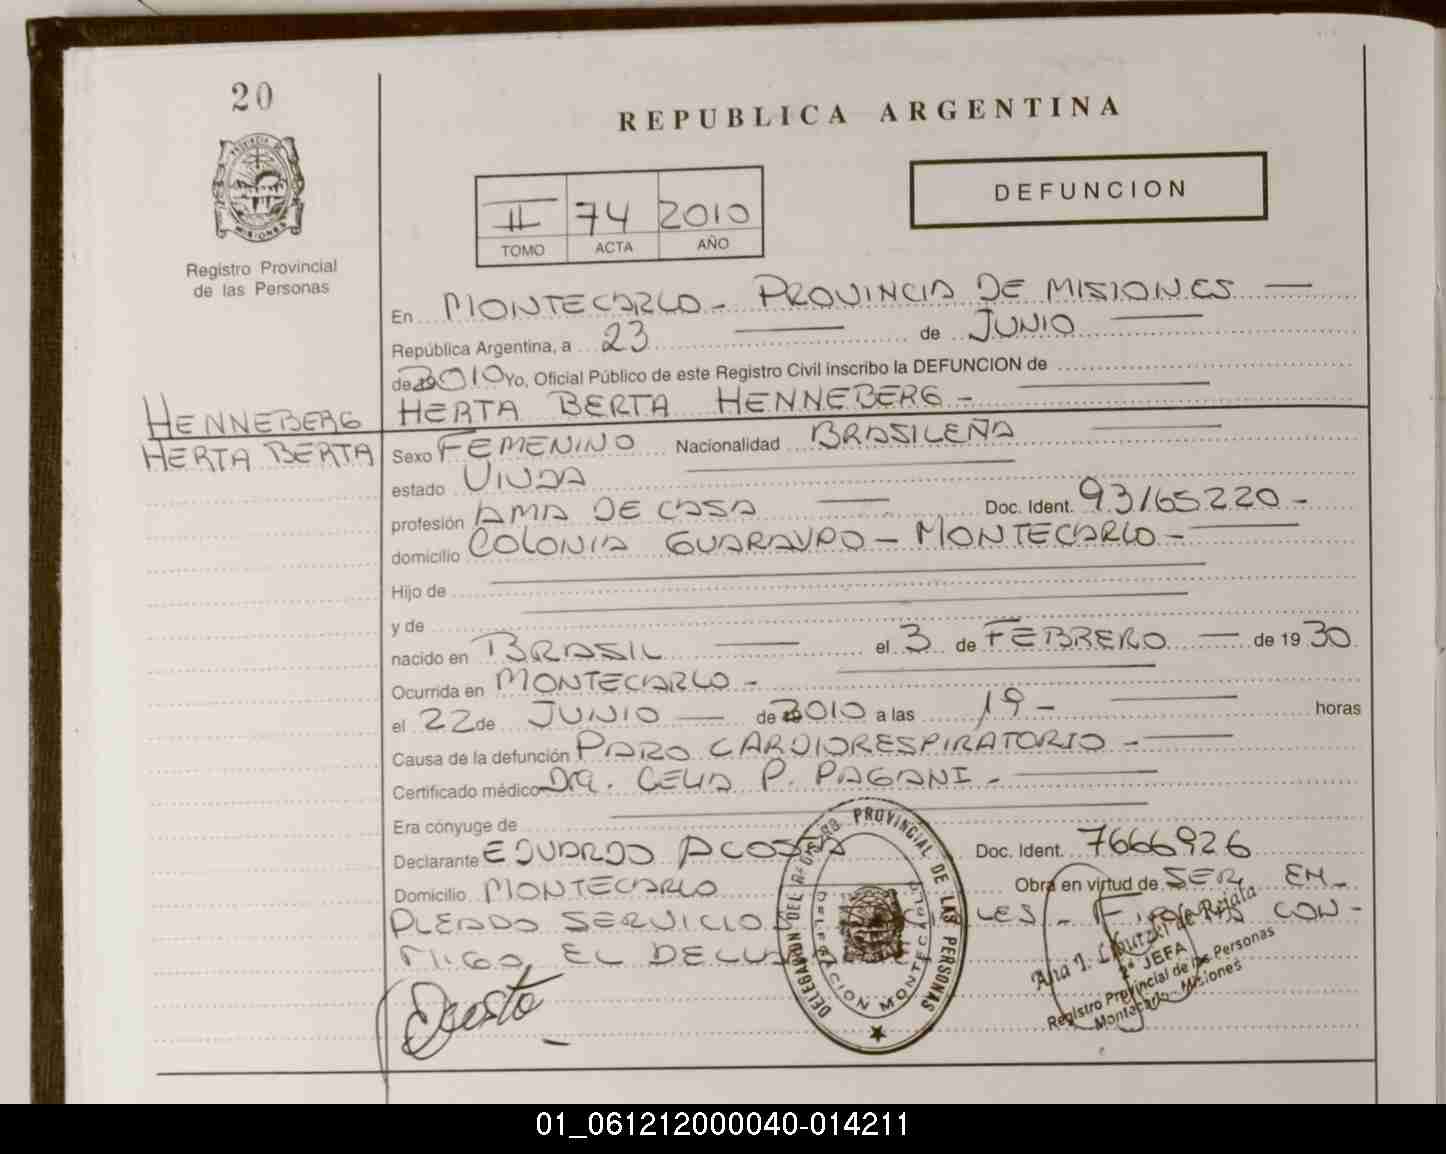 20
REPUBLICA ARGENTINA
PROVINCIA DE
MISIONES
Registro Provincial
de las Personas
II 74 2010
TOMO ACTA AÑO
DEFUNCION
En MONTECARLO - PROVINCIA DE MISIONES
República Argentina, a 23 de JUNIO
de 2010 Yo, Oficial Público de este Registro Civil inscribo la DEFUNCION de
HENNEBERG HERTA BERTA HENNEBERG -
HERTA BERTA Sexo FEMENINO Nacionalidad BRASILEÑA
estado VIUDA
profesión AMA DE CASA Doc. Ident. 93165220 -
domicilio COLONIA GUARAYPO - MONTECARLO -
Hijo de
y de
nacido en BRASIL el 3 de FEBRERO de 1930
Ocurrida en MONTECARLO -
el 22 de JUNIO de 2010 a las 19 - horas
Causa de la defunción PARO CARDIORESPIRATORIO -
Certificado médico DRA. CELIA P. PAGANI -
Era cónyuge de
Declarante EDUARDO ACOSTA Doc. Ident. 7666926
Domicilio MONTECARLO Obra en virtud de SER EM-
PLEADO SERVICIO LES - FIRMAN CON-
MIGO, EL
DELEGACION DEL REGISTRO PROVINCIAL DE LAS PERSONAS
DELEGACION MONTECARLO
Acosta
Ana J. de Rejala
2ª JEFA
Registro Provincial de las Personas
Montecarlo - Misiones
01_061212000040-014211